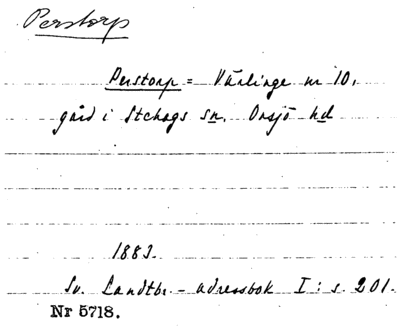 Perstorp
Perstorp = Värlinge nr 10,
gård i Stehags sn, Onsjö hd
1883.
Sv. Landtbr.-adressbok I: s. 201.
Nr 5718.